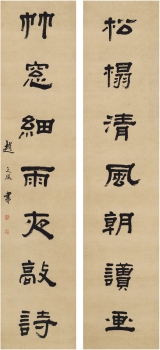 松榻清風朝讀畫
竹窓細雨夜敲詩
趙之琛書